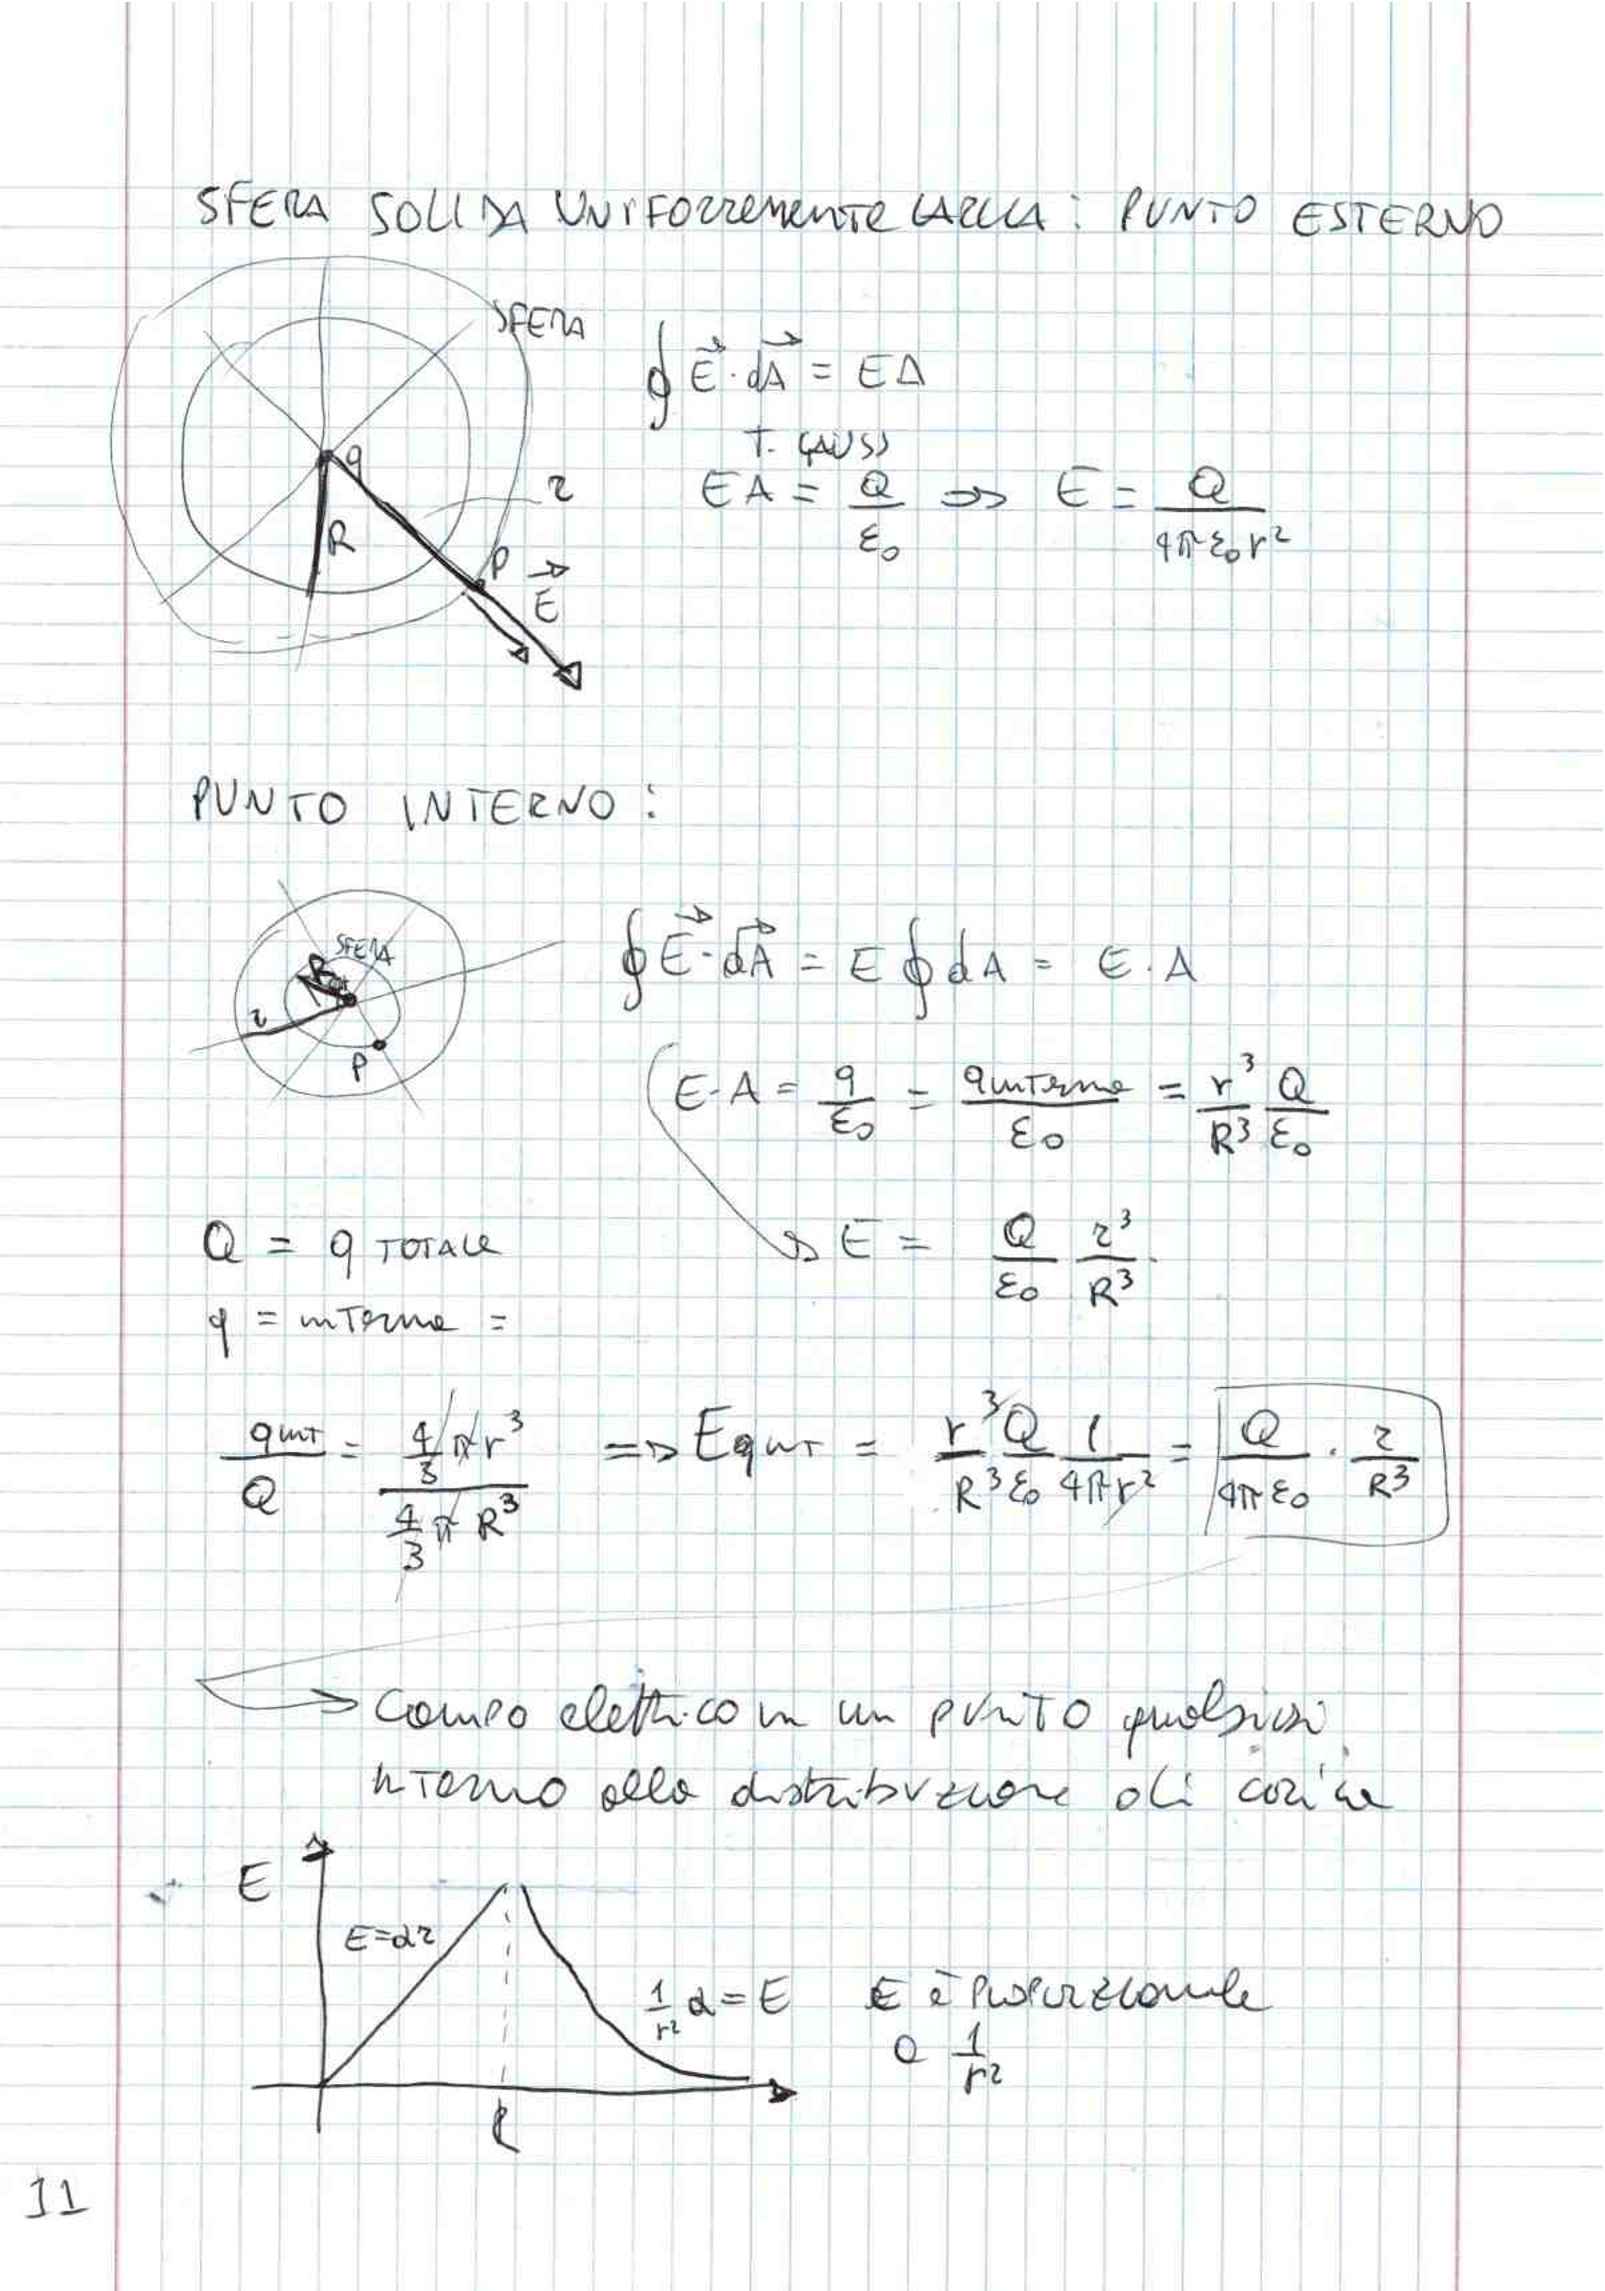 SFERA SOLIDA UNIFORMEMENTE CARICA: PUNTO ESTERNO
SFERA
∮ E⃗ · dA⃗ = EA
T. GAUSS
q
EA = Q/ε₀ ⇒ E = Q/(4πε₀r²)
r
R
P
E⃗
PUNTO INTERNO:
SFERA
R
r
P
∮ E⃗ · dA⃗ = E ∮ dA = E · A
E · A = q/ε₀ = q interna/ε₀ = r³/R³ Q/ε₀
Q = q TOTALE
E = Q/ε₀ r³/R³ ·
q = interna =
q int/Q = (4/3 π r³)/(4/3 π R³) ⇒ E q int = r³/R³ Q/ε₀ 1/(4πr²) = Q/(4πε₀) · r/R³
Campo elettrico in un punto qualsiasi
interno alla distribuzione di carica
E
E=αr
1/r² α = E
E è proporzionale
a 1/r²
R
11